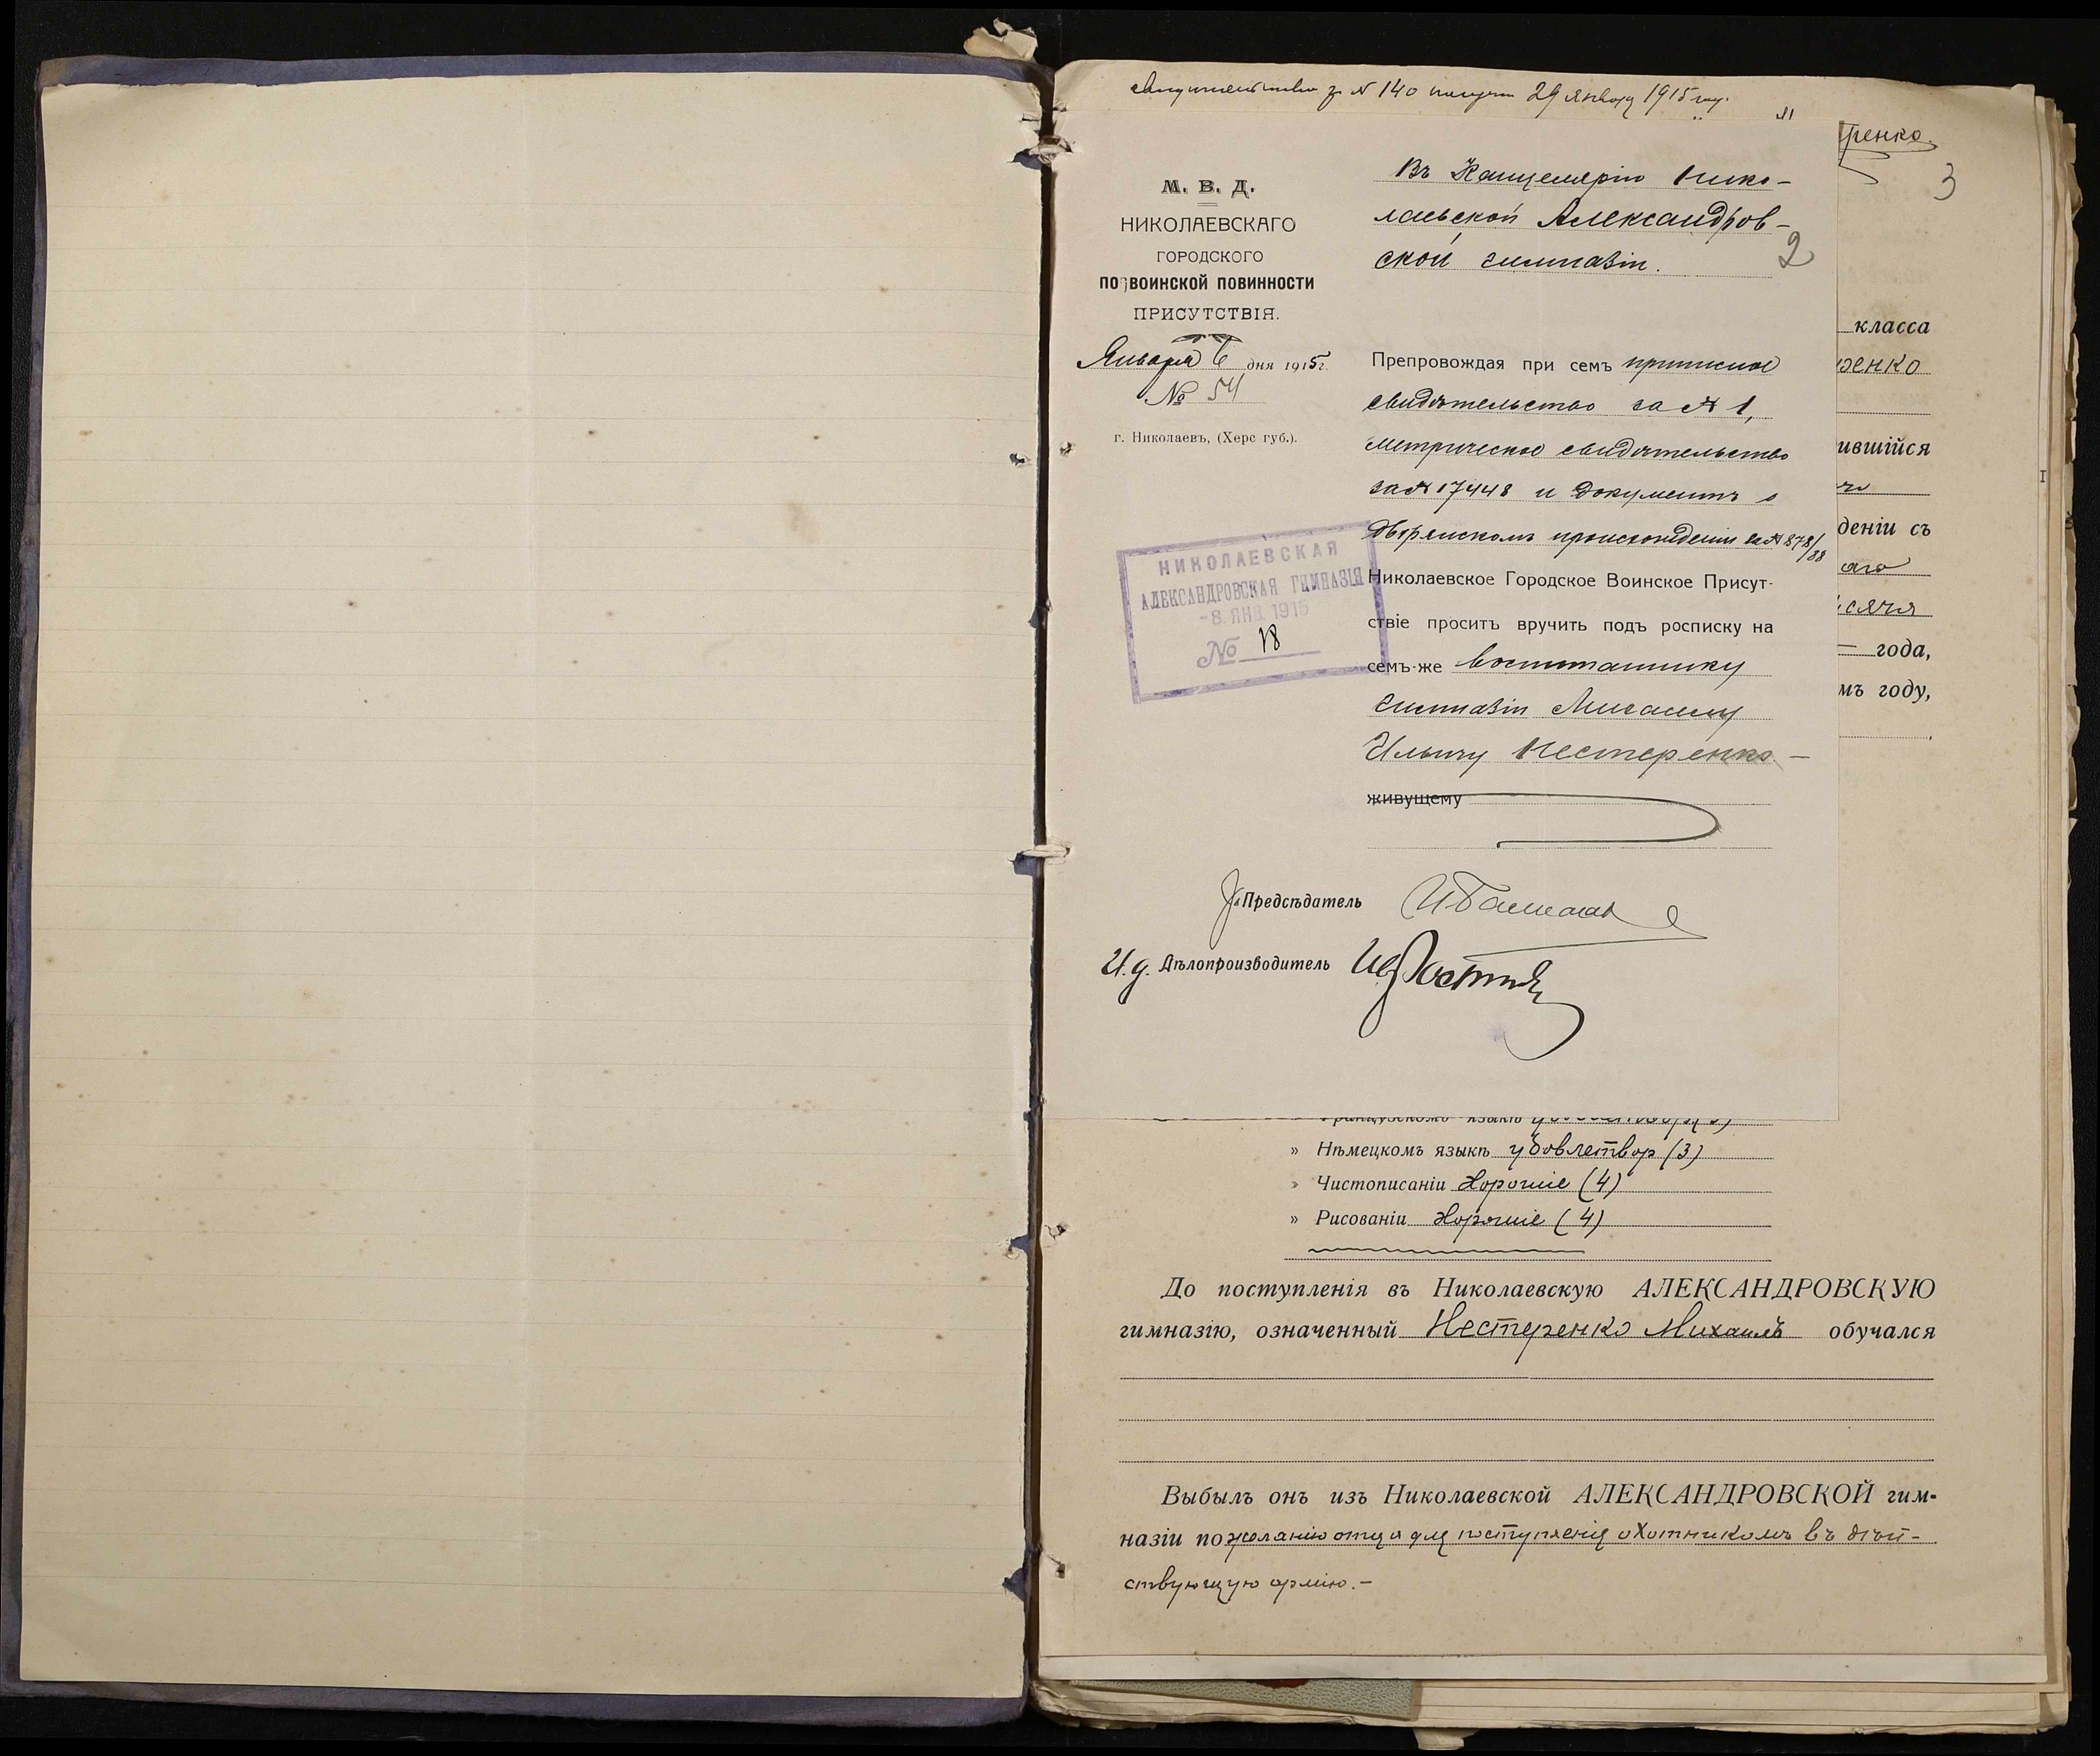 свидетельство за № 140 получ 29 января 1915 год.
3
М. В. Д.
НИКОЛАЕВСКАГО
ГОРОДСКОГО
ПО ВОИНСКОЙ ПОВИННОСТИ
ПРИСУТСТВІЯ.
Января 6 дня 1915 г.
№ 54
г. Николаевъ, (Херс губ.).
Въ Канцелярію Нико-
лаевской Александров-
ской гимназіи.
2
Препровождая при семъ приписное
свидѣтельство за № 1,
метрическое свидѣтельство
за № 17448 и документъ о
дворянскомъ происхожденіи за № 878/88
Николаевское Городское Воинское Присут-
ствіе проситъ вручить подъ росписку на
семъ-же воспитаннику
гимназіи Михаилу
Ильичу Нестеренко. —
живущему
НИКОЛАЕВСКАЯ
АЛЕКСАНДРОВСКАЯ ГИМНАЗІЯ
-8. ЯНВ. 1915
№ 18
Предсѣдатель
И.д. Дѣлопроизводитель
ренко
класса
ренко
ившійся
деніи съ
аго
сяча
— года,
мъ году,
Французскомъ языкѣ
» Нѣмецкомъ языкѣ удовлетвор (3)
» Чистописаніи Хорошіе (4)
» Рисованіи Хорошіе (4)
До поступленія въ Николаевскую АЛЕКСАНДРОВСКУЮ
гимназію, означенный Нестеренко Михаилъ обучался
Выбылъ онъ изъ Николаевской АЛЕКСАНДРОВСКОЙ гим-
назіи по желанію отца для поступленія охотникомъ въ дѣй-
ствующую армію. —